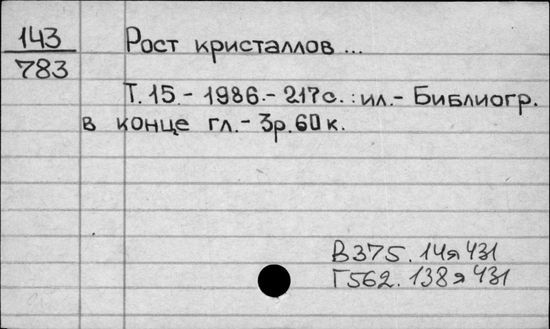 143
783
Рост кристаллов ...
Т.15.- 1986.- 217с.:ил.- Библиогр.
в конце гл.- 3р.60к.
В375.14я431
Г562.138я431